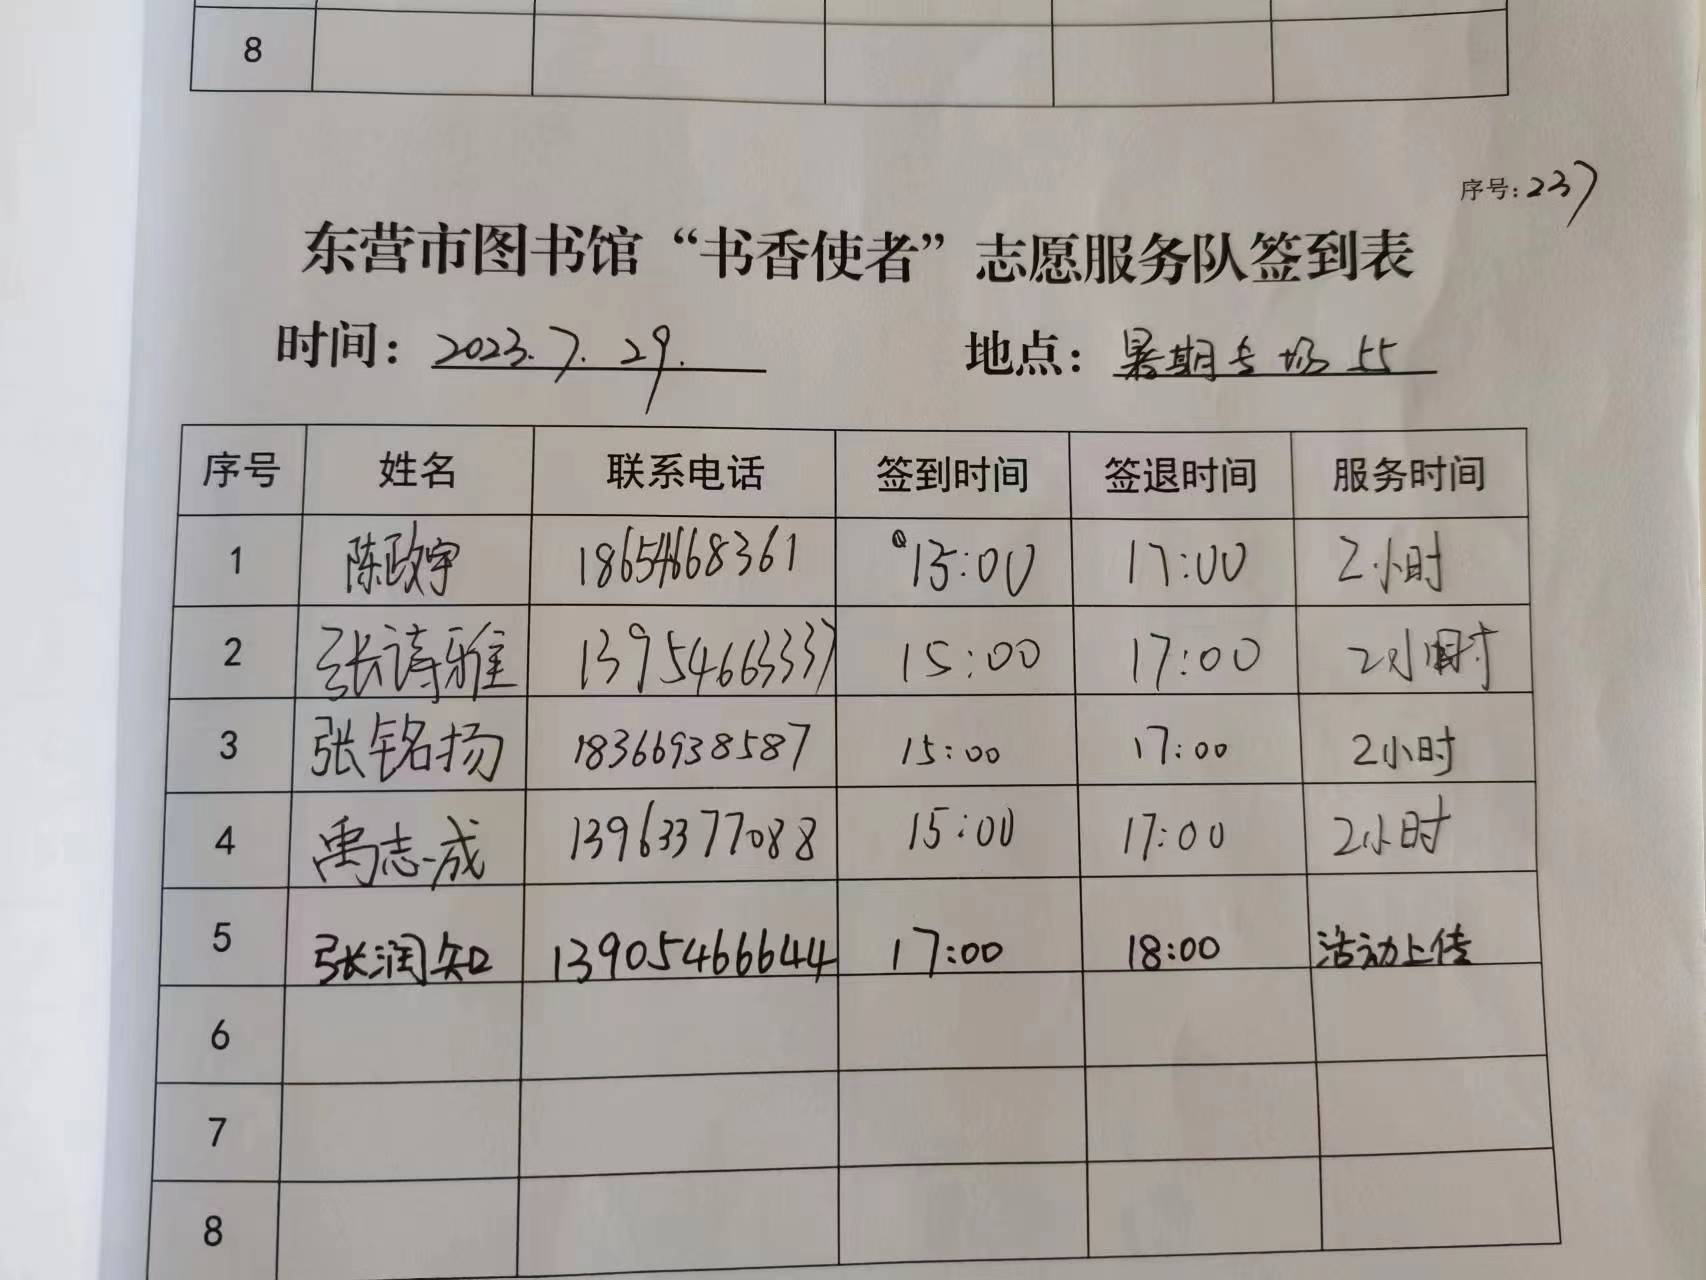 8
序号:237
东营市图书馆“书香使者”志愿服务队签到表
时间: 2023.7.29. 地点: 暑期专场55
序号 姓名 联系电话 签到时间 签退时间 服务时间
1 陈政宇 18654668361 15:00 17:00 2小时
2 张诗雅 13954663337 15:00 17:00 2小时
3 张铭扬 18366938587 15:00 17:00 2小时
4 禹志成 13963377088 15:00 17:00 2小时
5 张润知 13905466644 17:00 18:00 活动上传
6
7
8